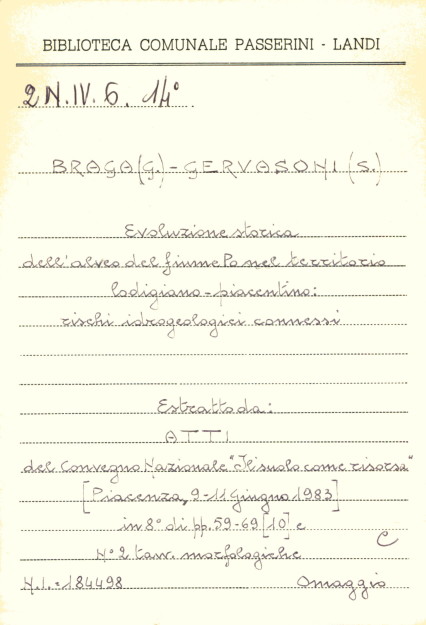 BIBLIOTECA COMUNALE PASSERINI - LANDI
2N.IV.6. 14°.
BRAGA(G.)-GERVASONI(S.)
Evoluzione storica
dell'alveo del fiume Po nel territorio
lodigiano-piacentino:
rischi idrogeologici connessi
Estratto da:
ATTI
del Convegno Nazionale "Il suolo come risorsa"
[Piacenza, 9-11 giugno 1983]
in 8° di pp. 59-69 [10] e
N° 2 tavv. morfologiche
C
N.I.=184498 Omaggio